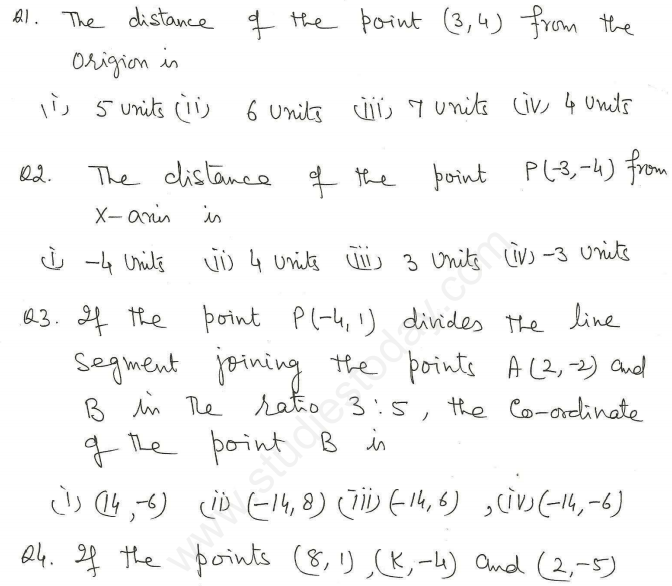 Q1. The distance of the point (3,4) from the
Origion is
(i) 5 units (ii) 6 units (iii) 7 units (iv) 4 units
Q2. The distance of the point P(-3,-4) from
X-axis is
(i) -4 units (ii) 4 units (iii) 3 units (iv) -3 units
Q3. If the point P(-4,1) divides the line
segment joining the points A(2,-2) and
B in the ratio 3:5, the Co-ordinate
of the point B is
(i) (14,-6) (ii) (-14,8) (iii) (-14,6) , (iv) (-14,-6)
Q4. If the points (8,1), (K,-4) and (2,-5)
www.studiestoday.com